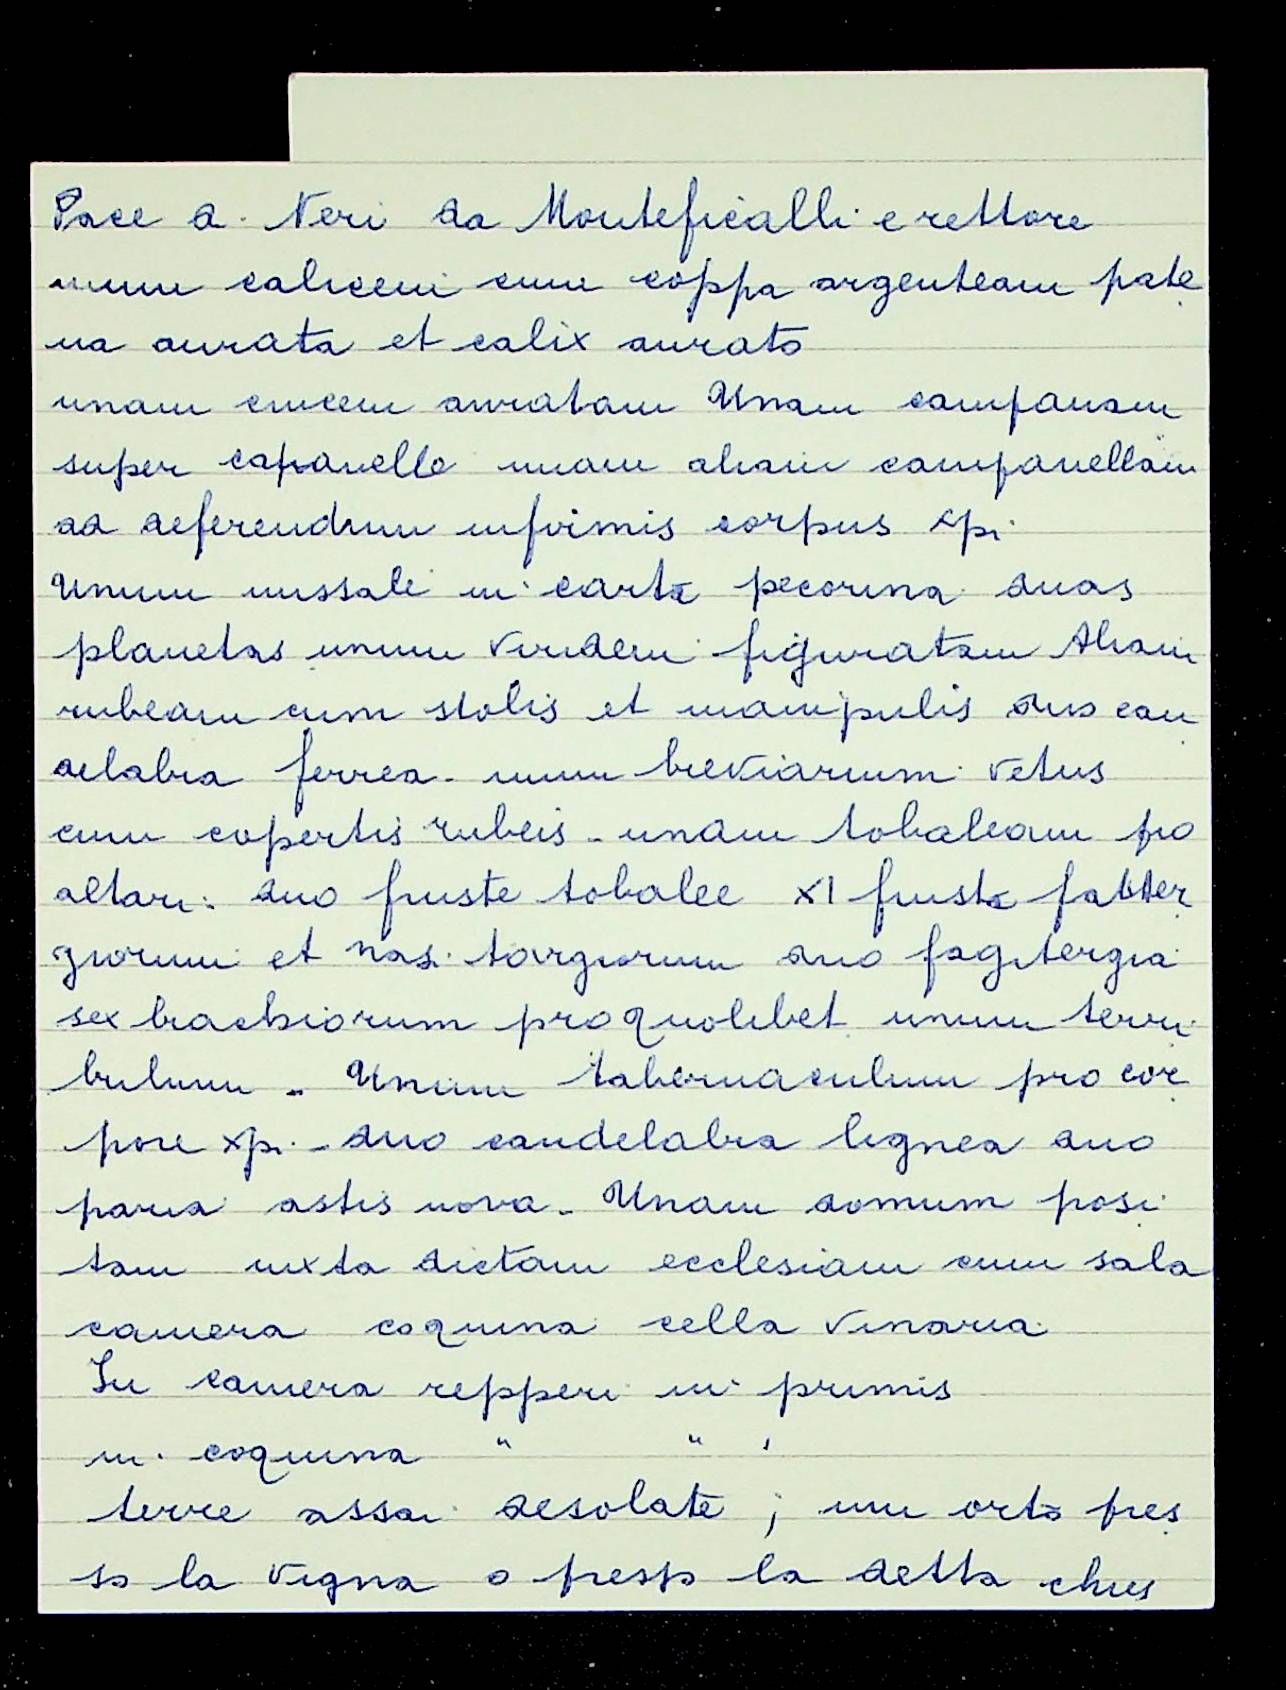 Pace d. Neri da Monteficalli e rettore
unum calicem cum coppa argenteam pate
na aurata et calix aurato
unam crucem auratam Unam campanam
super capanelle unam aliam campanellam
ad deferendum infirmis corpus xpi
Unum missale in carta pecorina duas
planetas unum viridem figuratam Aliam
rubeam cum stolis et manipulis duo can
delabra ferrea - unum breviarium vetus
cum copertis rubeis - unam tobaleam pro
altari: duo fruste tobalee XI frusta fatter
giorum et nas. torgiorum duo fagitergia
sex brachiorum pro quolibet unum terri
bulum - Unum tabernaculum pro cor
pore xpi - duo candelabra lignea duo
paria astis nova - Unam domum posi
tam iuxta dictam ecclesiam cum sala
camera coquina cella vinaria
In camera repperi in primis
in coquina " " '
terre assai desolate ; un orto pres
so la vigna o presso la detta chies